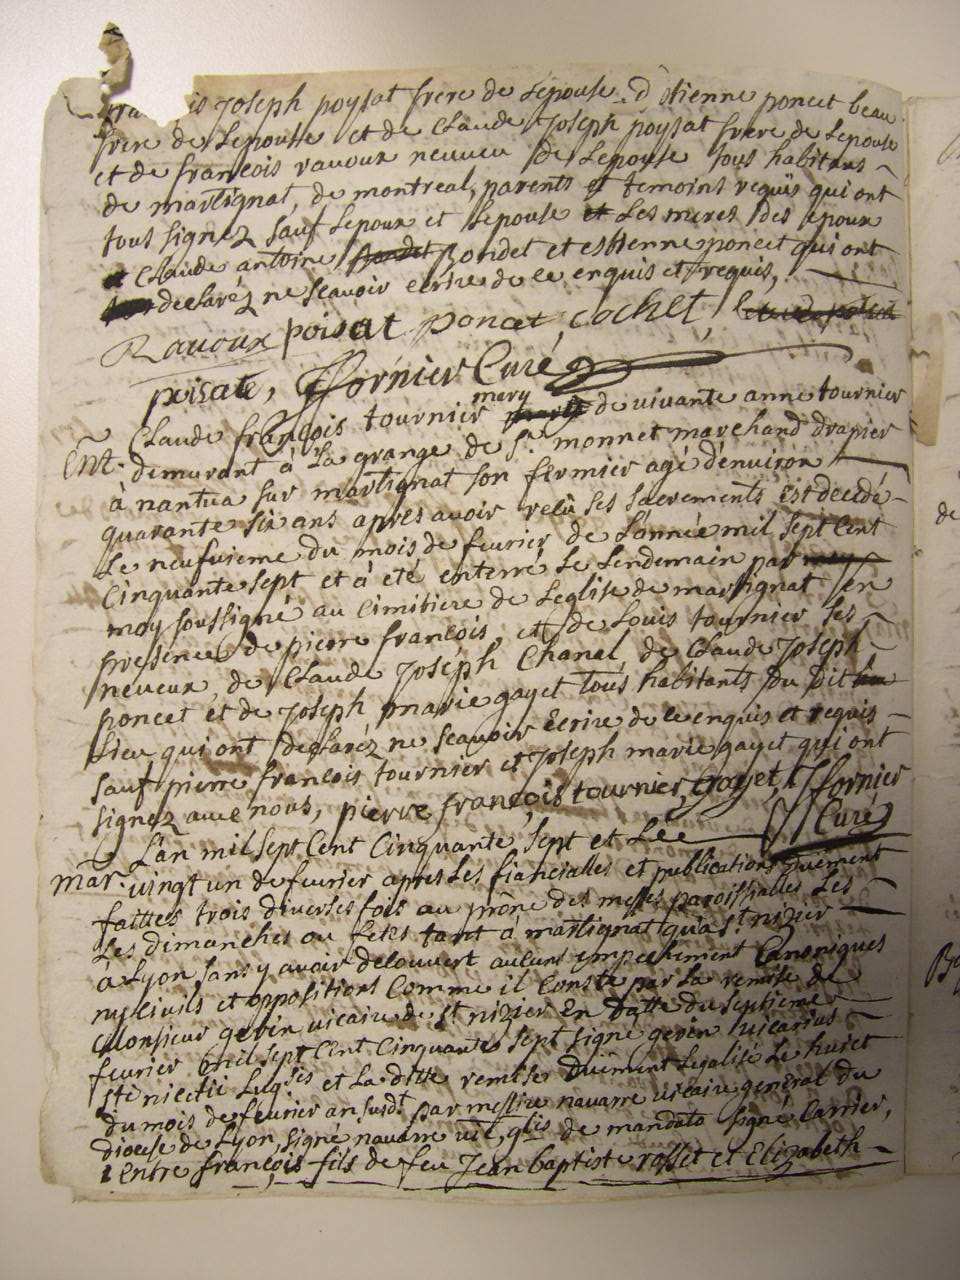 is Joseph poysat frere de Lepouse d'Etienne poncet beau
frere de Lepouse et de Claude Joseph poysat frere de Lepouse
et de francois ravoux neuveu de Lepouse tous habitans
de martignat, de montreal, parents et temoins requis qui ont
tous signez sauf Lepoux et Lepouse et Les meres des epoux
et Claude antoine Bondet et estienne poncet qui ont
declaréz ne scavoir ecrire de ce enquis et requis,
Ravoux poisat poncet cochet
poisate, fornier Curé
Claude françois tournier mary de vivante anne tournier
Ent. demurant à La grange de Sr. monnet marchand drapier
à nantua sur martignat son fermier agé d'environ
quarante six ans apres avoir reçû ses sacrements est decédé
Le neufvieme du mois de fevrier de L'année mil sept Cent
Cinquante sept et à été enterré Le Lendemain par
moy soussigné au Cimitiere de Leglise de martignat en
presence de pierre francois, et de Louis tournier ses
neveux, de Claude Joseph Chanal, de Claude Joseph
poncet et de Joseph marie gayet tous habitants du dit
Lieu qui ont declaréz ne scavoir Ecrire de ce enquis et requis
sauf pierre francois tournier et Joseph marie gayet qui ont
signez avec nous, pierre françois tournier, gayet, fornier
Curé
L'an mil sept Cent Cinquante sept et Le
mar. vingt un de fevrier apres Les fiancialles et publications duëment
faittes trois diverses fois au prône des messes paroissialles Les
Les dimanches ou fetes tant à martignat qu'à St. nizier
à Lyon, sans y avoir decouvert aucuns empechement Canoniques
ny Civils et oppositions Comme il Conste par La remise de
Monsieur gevin vicaire de St nizier En datte du septieme
fevrier mil sept Cent Cinquante sept signé gevin vicarius
Sti nicetii Lugsis et La ditte remise Duëment Legalisé Le huict
du mois de fevrier an susdt. par messire navarre vicaire general du
diocese de Lyon, signé navarre vic, glis de mandato signé Carrier,
Entre françois fils de feu Jean baptiste rosset et Elizabeth